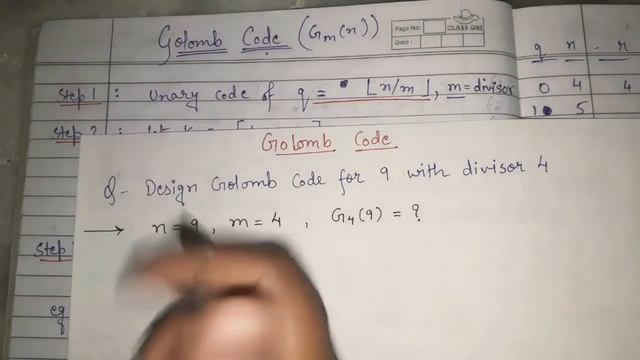 Golomb Code (Gm(n))
Page No:
Date :
CLASS ONE
q n r
Step 1 : Unary code of q = ⌊n/m⌋, m = divisor 0 4 4
Step 2 : 1 5
Golomb Code
Q - Design Golomb Code for 9 with divisor 4
→ n = 9, m = 4, G4(9) = ?
Step
eg